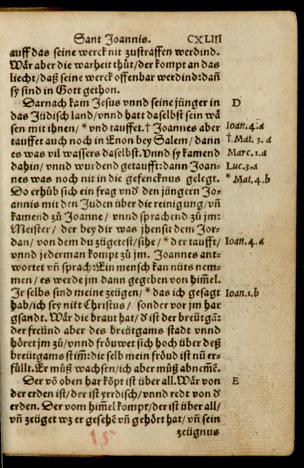 Sant Joannis. CXLIII
auff das seine werck nit zustraffen werdind.
Wär aber die warheit thůt/ der kompt an das
liecht/ daß seine werck offenbar werdind: dañ
sy sind in Gott gethon.
Darnach kam Jesus vnnd seine jünger in D
das Jüdisch land/ vnnd hatt daselbst sein wä
sen mit jhnen/ * vnd tauffet. † Joannes aber Joan.4.a
tauffet auch noch in Enon bey Salem/ dann † Mat.3.a
es was vil wassers daselbst. Vnnd sy kamend Marc.1.a
dahin/ vnnd wurdend getaufft: dann Joan= Luc.3.a
nes was noch nit in die gefencknus gelegt. * Mat.4.b
So erhůb sich ein frag vnd den jüngern Jo=
annis mit den Juden über die reinigung/ vñ
kamend zů Joanne/ vnnd sprachend zů jm:
Meister/ der bey dir was jhensit dem Jor=
dan/ von dem du zügetest/ sihe/ * der taufft/ Joan.4.a
vnnd jederman kompt zů jm. Joannes ant=
wortet vñ sprach: Ein mensch kan nüts nem=
men/ es werde jm dann gegeben von him̃el.
Jr selbs sind meine zeügen/ * das ich gesagt Joan.1.b
hab/ ich sey nitt Christus/ sonder vor jm har
gsandt. Wär die braut hat/ ð ist der breütgã:
der freünd aber des breütgams stadt vnnd
höret jm zů/ vnnd fröuwet sich hoch über deß
breütgams stim̃: die selb mein fröud ist nů er=
füllt. Er můß wachsen/ ich aber můß abnem̃e.
Der võ oben har kõpt ist über all. Wär von E
der erden ist/ der ist yrrdisch/ vnnd redt von ð
erden. Der vom him̃el kompt/ der ist über all/
vñ zeüget wz er gesehẽ vñ gehört hat/ vñ sein
zeügnus